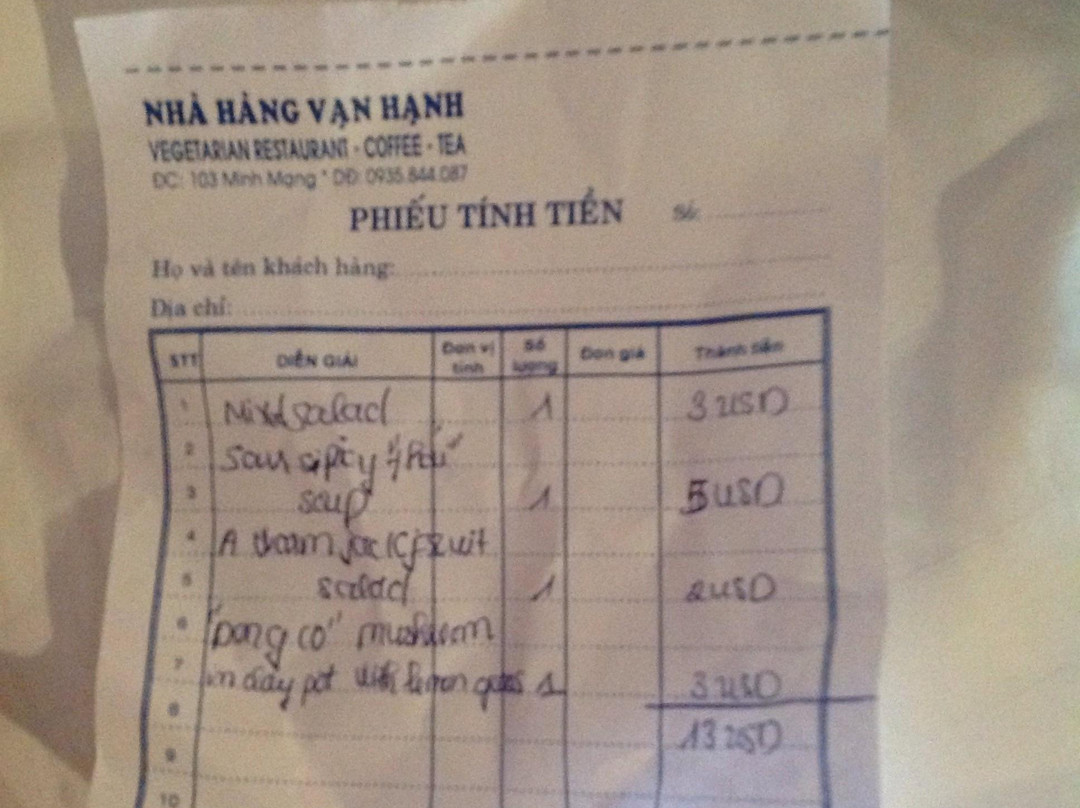 NHÀ HÀNG VẠN HẠNH
VEGETARIAN RESTAURANT - COFFEE - TEA
ĐC: 103 Minh Mạng * DĐ: 0935.844.087
PHIẾU TÍNH TIỀN Số:
Họ và tên khách hàng:
Địa chỉ:
STT DIỄN GIẢI Đơn vị tính Số lượng Đơn giá Thành tiền
1 Mixd salad 1 3 USD
2 Sour spicy
3 soup 1 5 USD
4 A jack fruit
5 salad 1 2 USD
6 "Dong co" mushroom
7 in clay pot with lemon 1 3 USD
8 13 USD
9
10